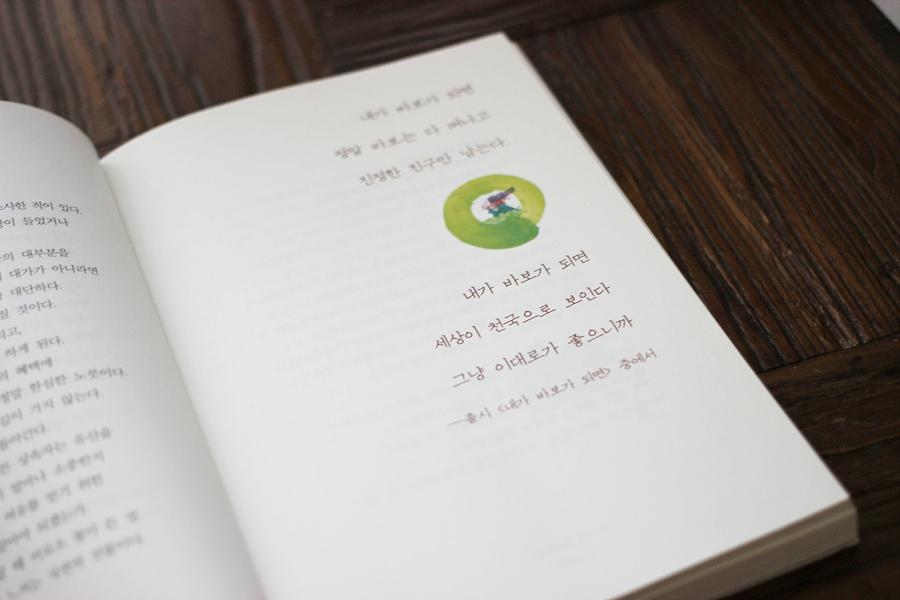 사한 적이 있다.
이 들었거나
의 대부분을
대가가 아니라면
대단하다.
질 것이다.
하게 된다.
의 혜택에
정말 한심한 노릇이다.
감이 가지 않는다.
돌아간다.
상속자는 유산을
얼마나 소중한지
여유를 얻기 위한
내가 바보가 되면
정말 바보는 다 떠나고
진정한 친구만 남는다.
내가 바보가 되면
세상이 천국으로 보인다
그냥 이대로가 좋으니까
—졸시 <내가 바보가 되면> 중에서